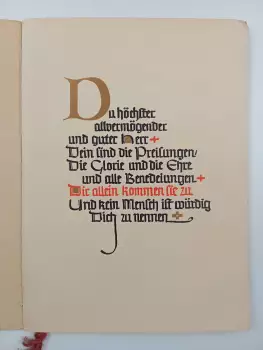 Du höchster
allvermögender
und guter Herr +
Dein sind die Preisungen/
Die Glorie und die Ehre
und alle Benedeiungen +
Dir allein kommen sie zu
Und kein Mensch ist würdig
Dich zu nennen +